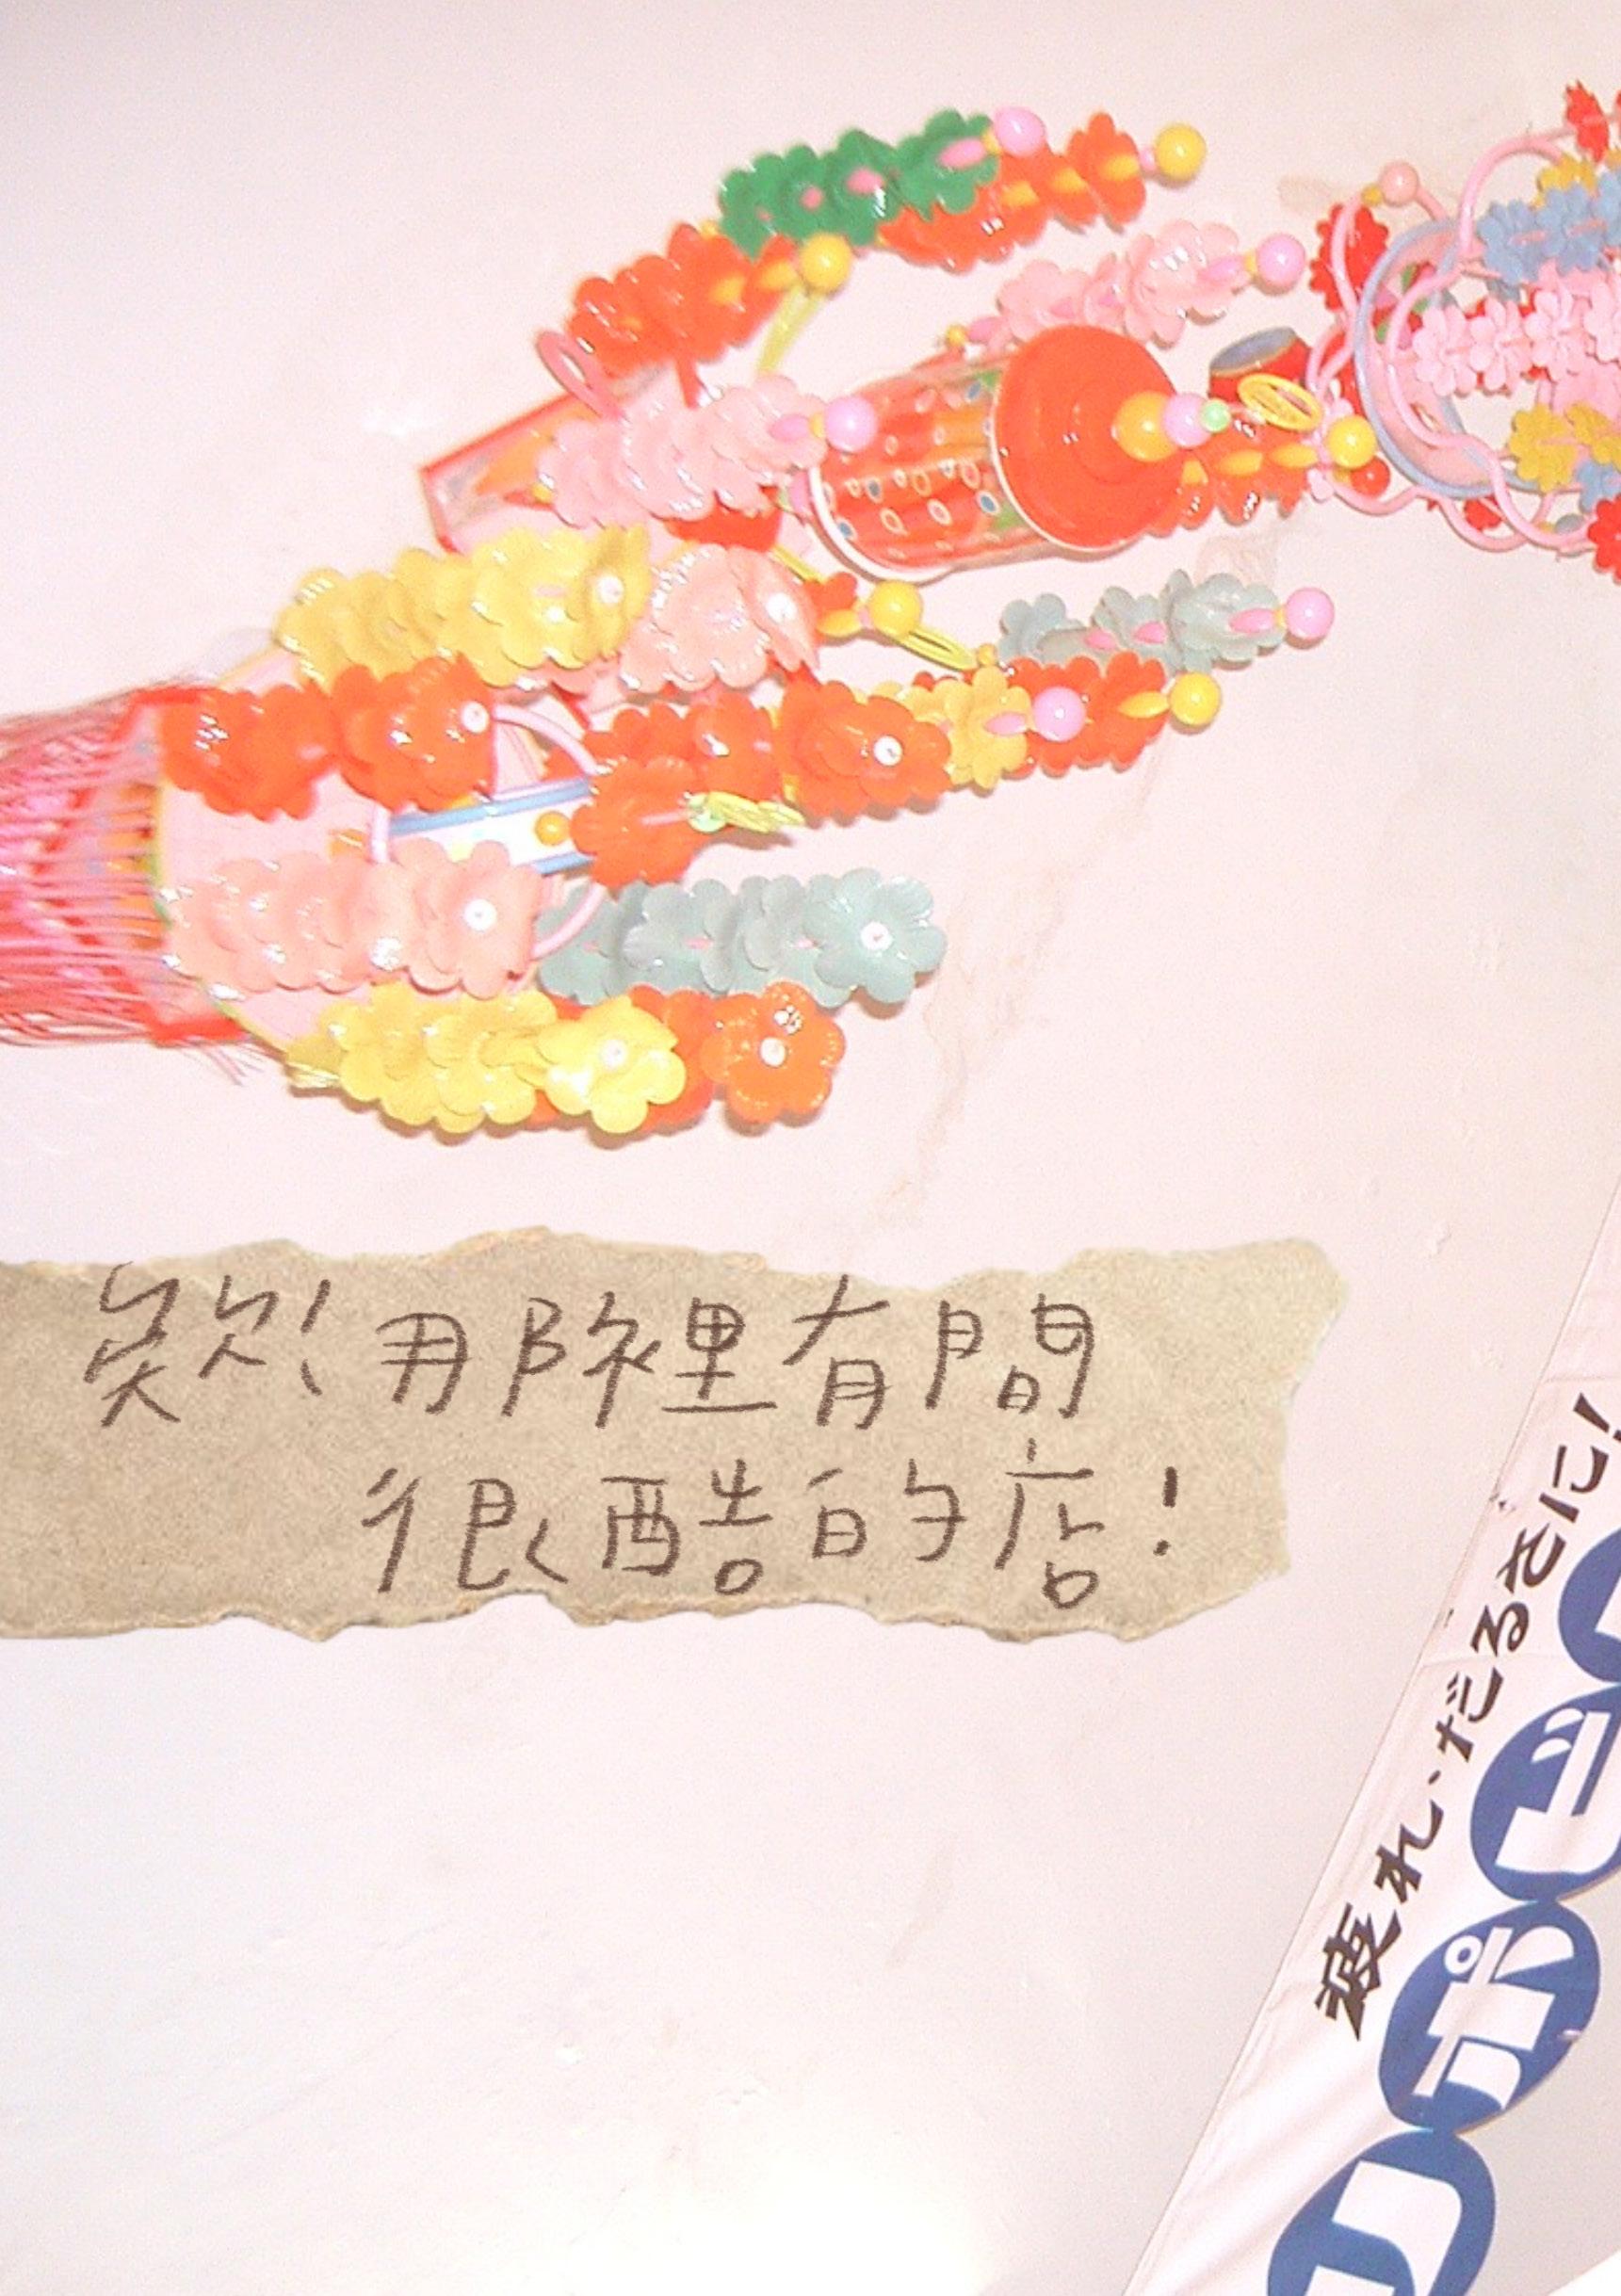 欸！那裡有間
很酷的店！
疲れ・だるさに！
リポビ